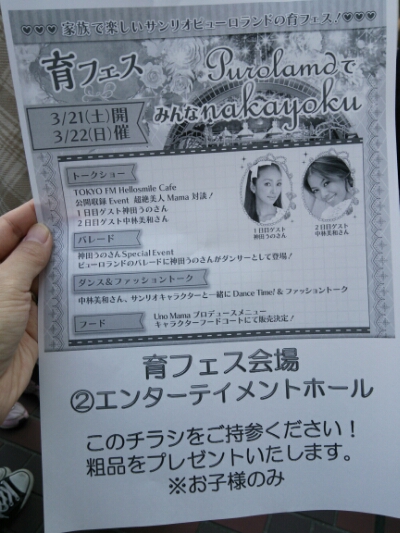 ♥♥♥ 家族で楽しいサンリオピューロランドの育フェス！ ♥♥♥
育フェス
Purolandで
みんなnakayoku
3/21(土)開
3/22(日)催
トークショー
TOKYO FM Hellosmile Cafe
公開収録 Event 超絶美人 Mama 対談！
1日目ゲスト神田うのさん
2日目ゲスト中林美和さん
1日目ゲスト
神田うのさん
2日目ゲスト
中林美和さん
パレード
神田うのさん Special Event
ピューロランドのパレードに神田うのさんがダンサーとして登場！
ダンス&ファッショントーク
中林美和さん、サンリオキャラクターと一緒にDance Time! & ファッショントーク
フード
Uno Mama プロデュースメニュー
キャラクターフードコートにて販売決定！
育フェス会場
②エンターテイメントホール
このチラシをご持参ください！
粗品をプレゼントいたします。
※お子様のみ